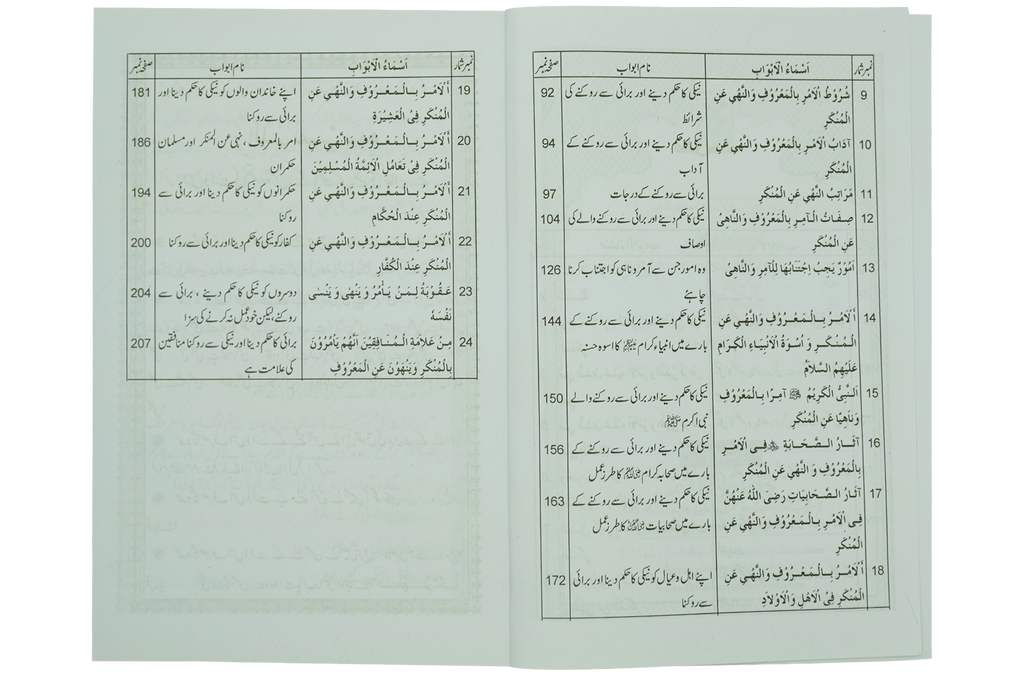 نمبر شمار اَسْمَاءُ الْاَبْوَابِ نام ابواب صفحہ نمبر
9 شُرُوْطُ الْاَمْرِ بِالْمَعْرُوْفِ وَالنَّهْىِ عَنِ نیکی کا حکم دینے اور برائی سے روکنے کی 92
الْمُنْكَرِ شرائط
10 آدَابُ الْاَمْرِ بِالْمَعْرُوْفِ وَالنَّهْىِ عَنِ نیکی کا حکم دینے اور برائی سے روکنے کے 94
الْمُنْكَرِ آداب
11 مَرَاتِبُ النَّهْىِ عَنِ الْمُنْكَرِ برائی سے روکنے کے درجات 97
12 صِفَاتُ الْآمِرِ بِالْمَعْرُوْفِ وَالنَّاهِىْ نیکی کا حکم دینے اور برائی سے روکنے والے کی 104
عَنِ الْمُنْكَرِ اوصاف
13 اُمُوْرٌ يَجِبُ اِجْتِنَابُهَا لِلْآمِرِ وَالنَّاهِىْ وہ امور جن سے آمر و ناہی کو اجتناب کرنا 126
چاہئے
14 أَلْاَمْرُ بِالْمَعْرُوْفِ وَالنَّهْىِ عَنِ نیکی کا حکم دینے اور برائی سے روکنے کے 144
الْمُنْكَرِ وَ اُسْوَةُ الْاَنْبِيَاءِ الْكِرَامِ بارے میں انبیاء کرام کا اسوہ حسنہ
عَلَيْهِمُ السَّلَامُ
15 اَلنَّبِىُّ الْكَرِيْمُ ﷺ آمِرًا بِالْمَعْرُوْفِ نیکی کا حکم دینے اور برائی سے روکنے والے 150
وَنَاهِيًا عَنِ الْمُنْكَرِ نبی اکرم ﷺ
16 آثَارُ الصَّحَابَةِ فِى الْاَمْرِ نیکی کا حکم دینے اور برائی سے روکنے کے 156
بِالْمَعْرُوْفِ وَ النَّهْىِ عَنِ الْمُنْكَرِ بارے میں صحابہ کرام کا طرز عمل
17 آثَارُ الصَّحَابِيَاتِ رَضِىَ اللّٰهُ عَنْهُنَّ نیکی کا حکم دینے اور برائی سے روکنے کے 163
فِى الْاَمْرِ بِالْمَعْرُوْفِ وَالنَّهْىِ عَنِ بارے میں صحابیات کا طرز عمل
الْمُنْكَرِ
18 أَلْاَمْرُ بِالْمَعْرُوْفِ وَالنَّهْىِ عَنِ اپنے اہل و عیال کو نیکی کا حکم دینا اور برائی 172
الْمُنْكَرِ فِى الْاَهْلِ وَالْاَوْلَادِ سے روکنا
نمبر شمار اَسْمَاءُ الْاَبْوَابِ نام ابواب صفحہ نمبر
19 أَلْاَمْرُ بِالْمَعْرُوْفِ وَالنَّهْىِ عَنِ اپنے خاندان والوں کو نیکی کا حکم دینا اور 181
الْمُنْكَرِ فِى الْعَشِيْرَةِ برائی سے روکنا
20 أَلْاَمْرُ بِالْمَعْرُوْفِ وَالنَّهْىِ عَنِ امر بالمعروف ، نہی عن المنکر اور مسلمان 186
الْمُنْكَرِ فِى تَعَامُلِ الْاَئِمَّةِ الْمُسْلِمِيْنَ حکمران
21 أَلْاَمْرُ بِالْمَعْرُوْفِ وَالنَّهْىِ عَنِ حکمرانوں کو نیکی کا حکم دینا اور برائی سے 194
الْمُنْكَرِ عِنْدَ الْحُكَّامِ روکنا
22 أَلْاَمْرُ بِالْمَعْرُوْفِ وَالنَّهْىِ عَنِ کفار کو نیکی کا حکم دینا اور برائی سے روکنا 200
الْمُنْكَرِ عِنْدَ الْكُفَّارِ
23 عَقُوْبَةُ لِمَنْ يَأْمُرُ وَ يَنْهٰى وَ يَنْسٰى دوسروں کو نیکی کا حکم دینے ، برائی سے 204
نَفْسَهُ روکنے لیکن خود عمل نہ کرنے کی سزا
24 مِنْ عَلَامَةِ الْمُنَافِقِيْنَ اَنَّهُمْ يَأْمُرُوْنَ برائی کا حکم دینا اور نیکی سے روکنا منافقین 207
بِالْمُنْكَرِ وَيَنْهَوْنَ عَنِ الْمَعْرُوْفِ کی علامت ہے